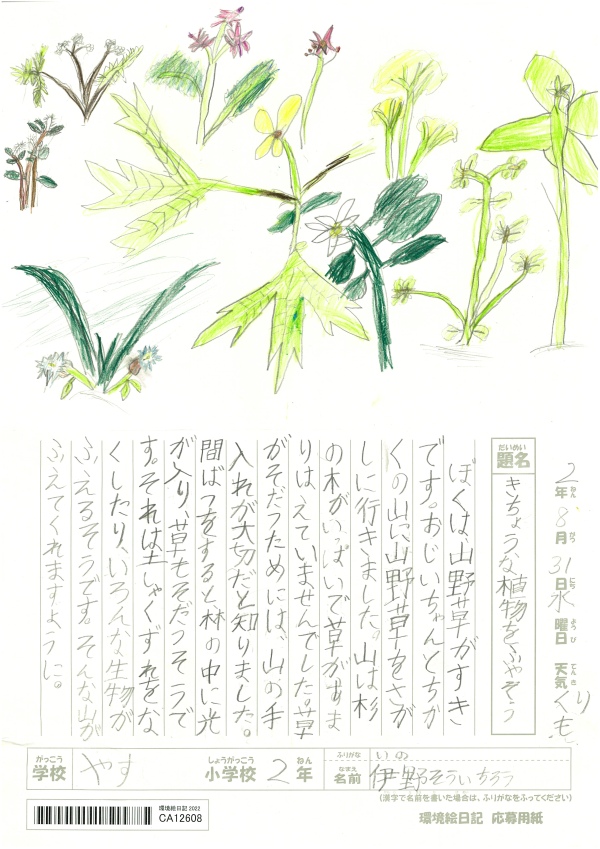 2年8月31日水曜日 天気くもり
ねん がつ にち ようび てんき
だいめい
題名
きちょうな植物をふやそう
ぼくは、山野草がすき
です。おじいちゃんとちか
くの山に山野草をさが
しに行きました。山は杉
の木がいっぱいで草があま
りはえていませんでした。草
がそだつためには、山の手
入れが大切だと知りました。
間ばつをすると林の中に光
が入り、草もそだつそうで
す。それは土しゃくずれをな
くしたり、いろんな生物が
ふえるそうです。そんな山が
ふえてくれますように。
がっこう しょうがっこう ねん
学校 やす 小学校 2年
ふりがな いの
なまえ
名前 伊野そういちろう
(漢字で名前を書いた場合は、ふりがなをふってください)
環境絵日記 2022
CA12608
環境絵日記 応募用紙